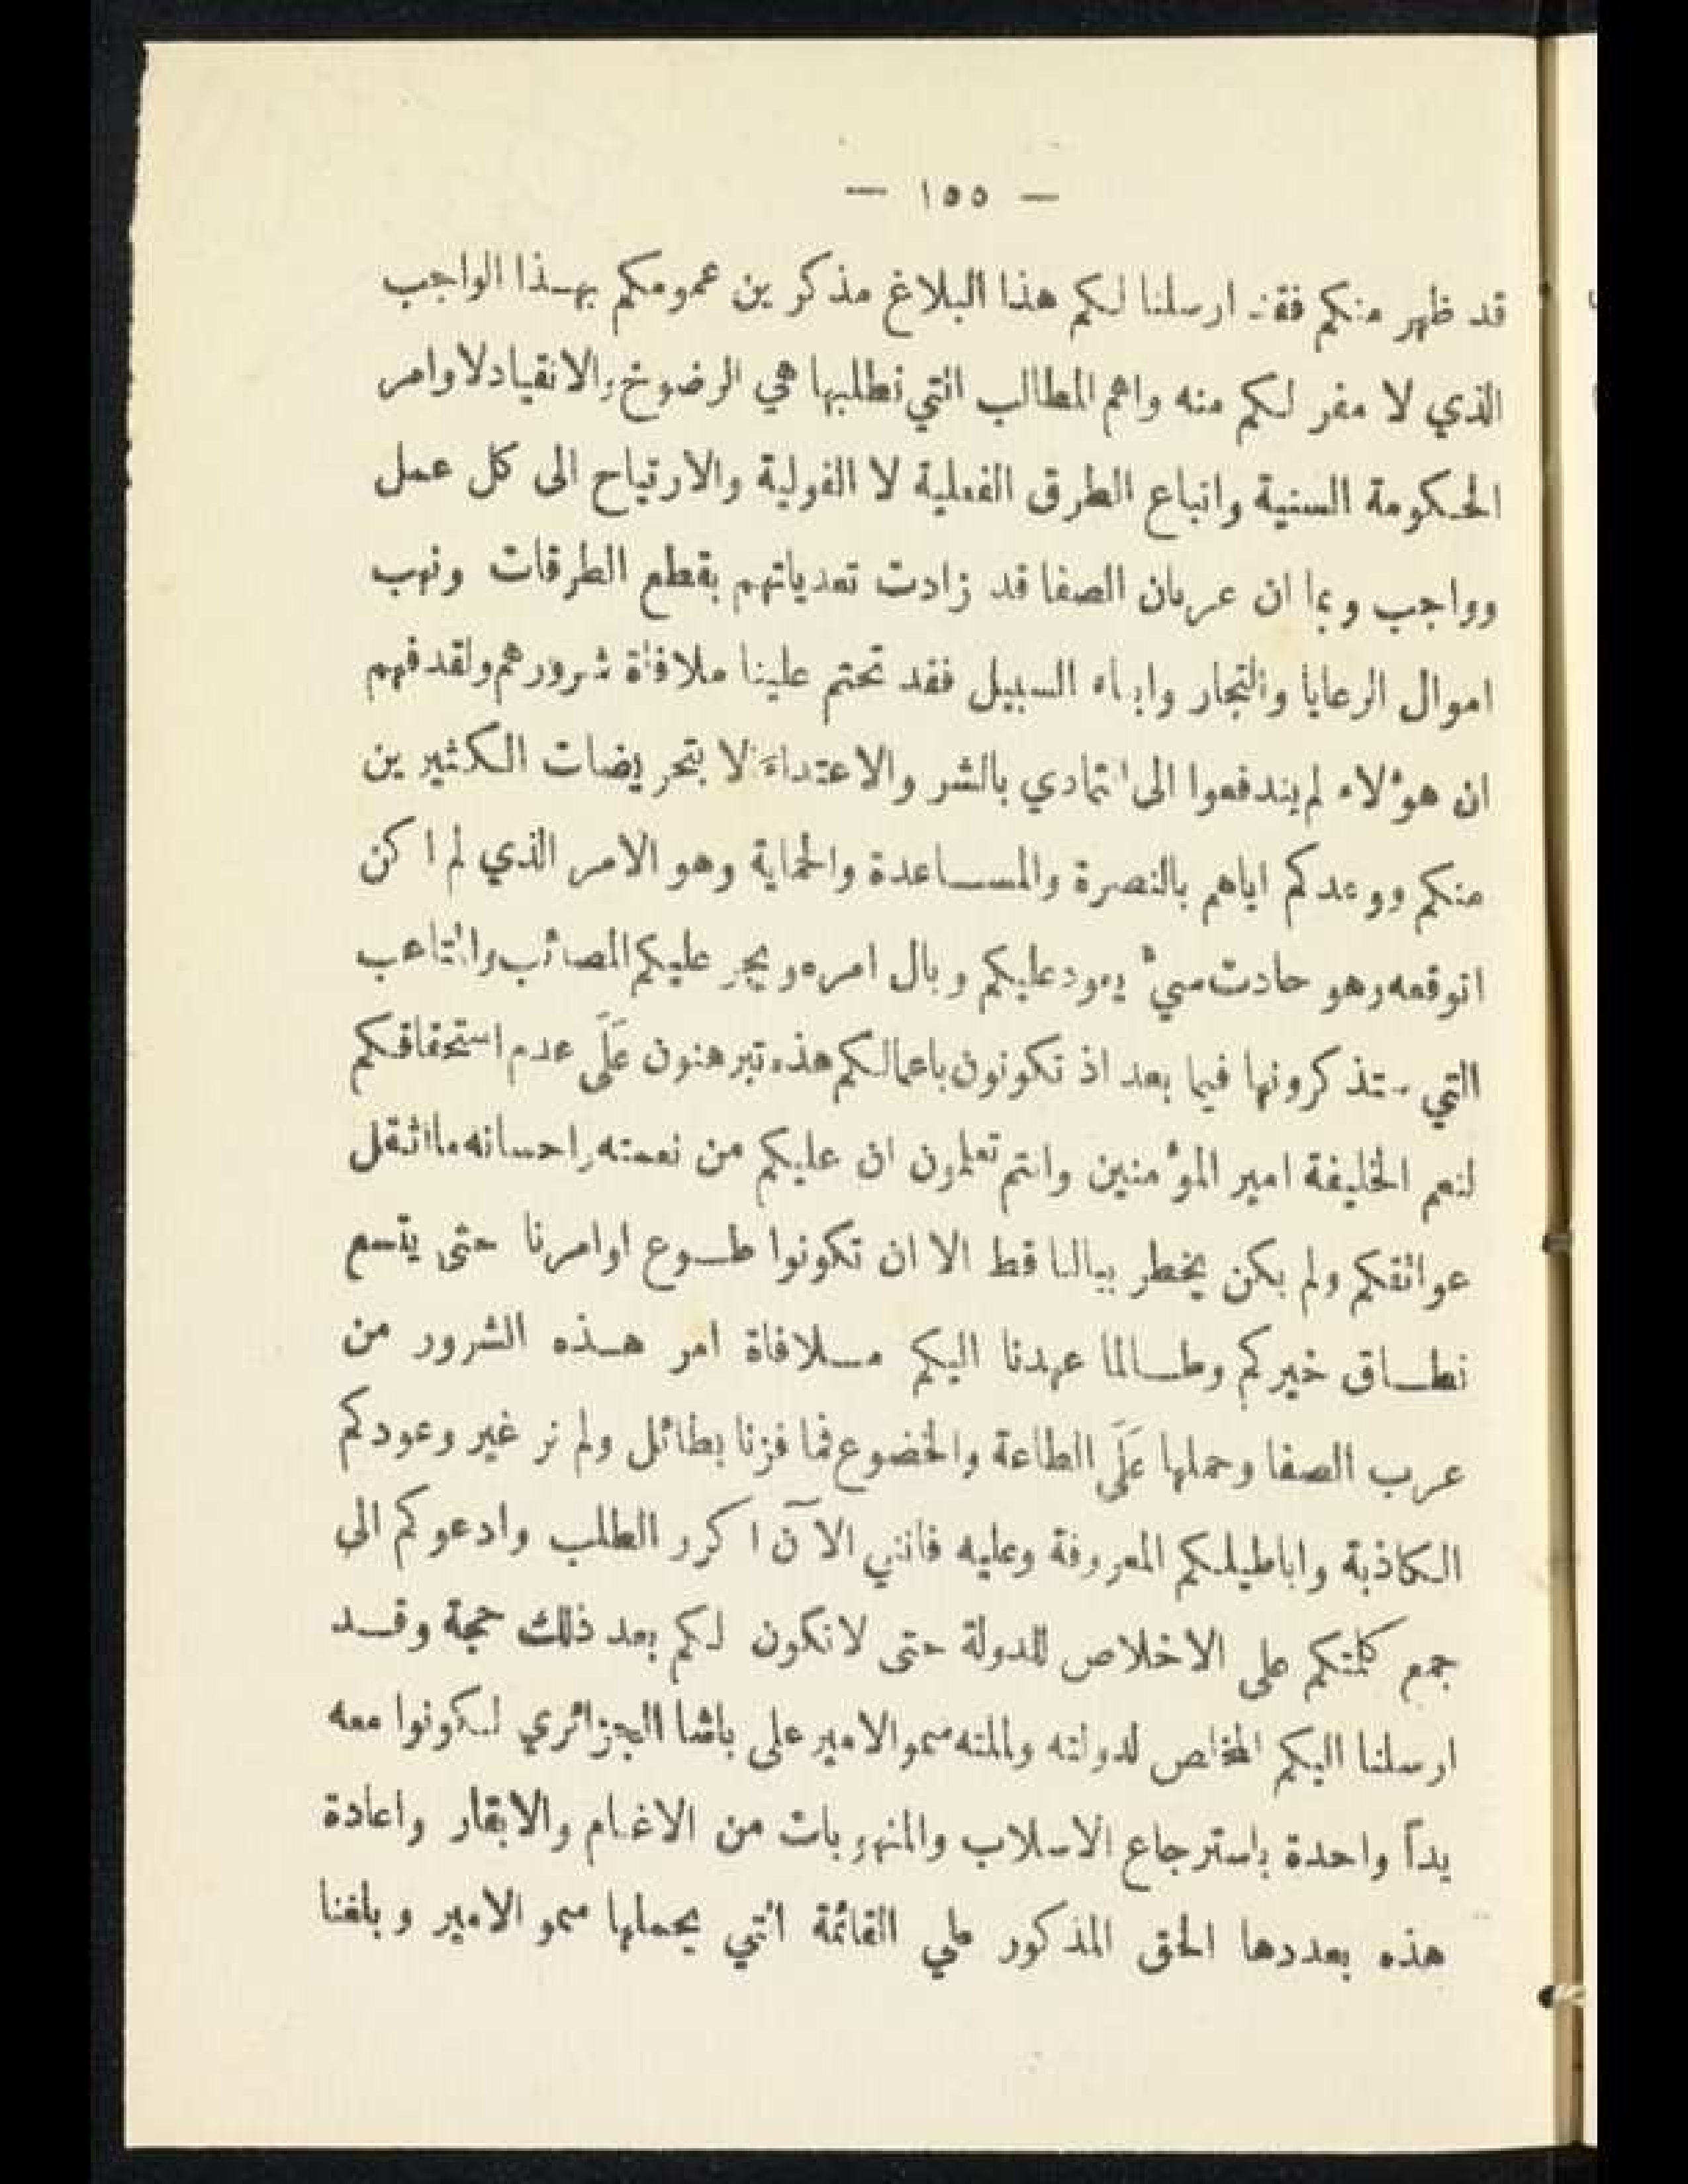 — ١٥٥ —
قد ظهر منكم فقد ارسلنا لكم هذا البلاغ مذكرين عمومكم بهذا الواجب
الذي لا مفر لكم منه واهم المطالب التي نطلبها هي الرضوخ والانقياد لاوامر
الحكومة السنية واتباع الطرق الفعلية لا القولية والارتياح الى كل عمل
وواجب وبما ان عربان الصفا قد زادت تعدياتهم بقطع الطرقات ونهب
اموال الرعايا والتجار وابناء السبيل فقد تحتم علينا ملافاة شرورهم ولقد فهم
ان هؤلاء لم يندفعوا الى التمادي بالشر والاعتداء الا بتحريضات الكثيرين
منكم ووعدكم اياهم بالنصرة والمساعدة والحماية وهو الامر الذي لم اكن
اتوقعه وهو حادث سيءٌ يعود عليكم وبال امره ويجر عليكم المصائب والمتاعب
التي ستذكرونها فيما بعد اذ تكونون باعمالكم هذه تبرهنون عَلَى عدم استحقاقكم
لنعم الخليفة امير المؤمنين وانتم تعلمون ان عليكم من نعمته واحسانه ما اثقل
عواتقكم ولم يكن يخطر ببالنا قط الا ان تكونوا طوع اوامرنا حتى يتسع
نطاق خيركم وطالما عهدنا اليكم ملافاة امر هذه الشرور من
عرب الصفا وحملها عَلَى الطاعة والخضوع فما فزنا بطائل ولم نر غير وعودكم
الكاذبة واباطيلكم المعروفة وعليه فانني الآن اكرر الطلب وادعوكم الى
جمع كلمتكم على الاخلاص للدولة حتى لا تكون لكم بعد ذلك حجة وقد
ارسلنا اليكم المخلص لدولته والمته سمو الامير علي باشا الجزائري لتكونوا معه
يداً واحدة باسترجاع الاسلاب والمنهوبات من الاغنام والابقار واعادة
هذه بعددها الحق المذكور علي القائمة التي يحملها سمو الامير وبلغنا